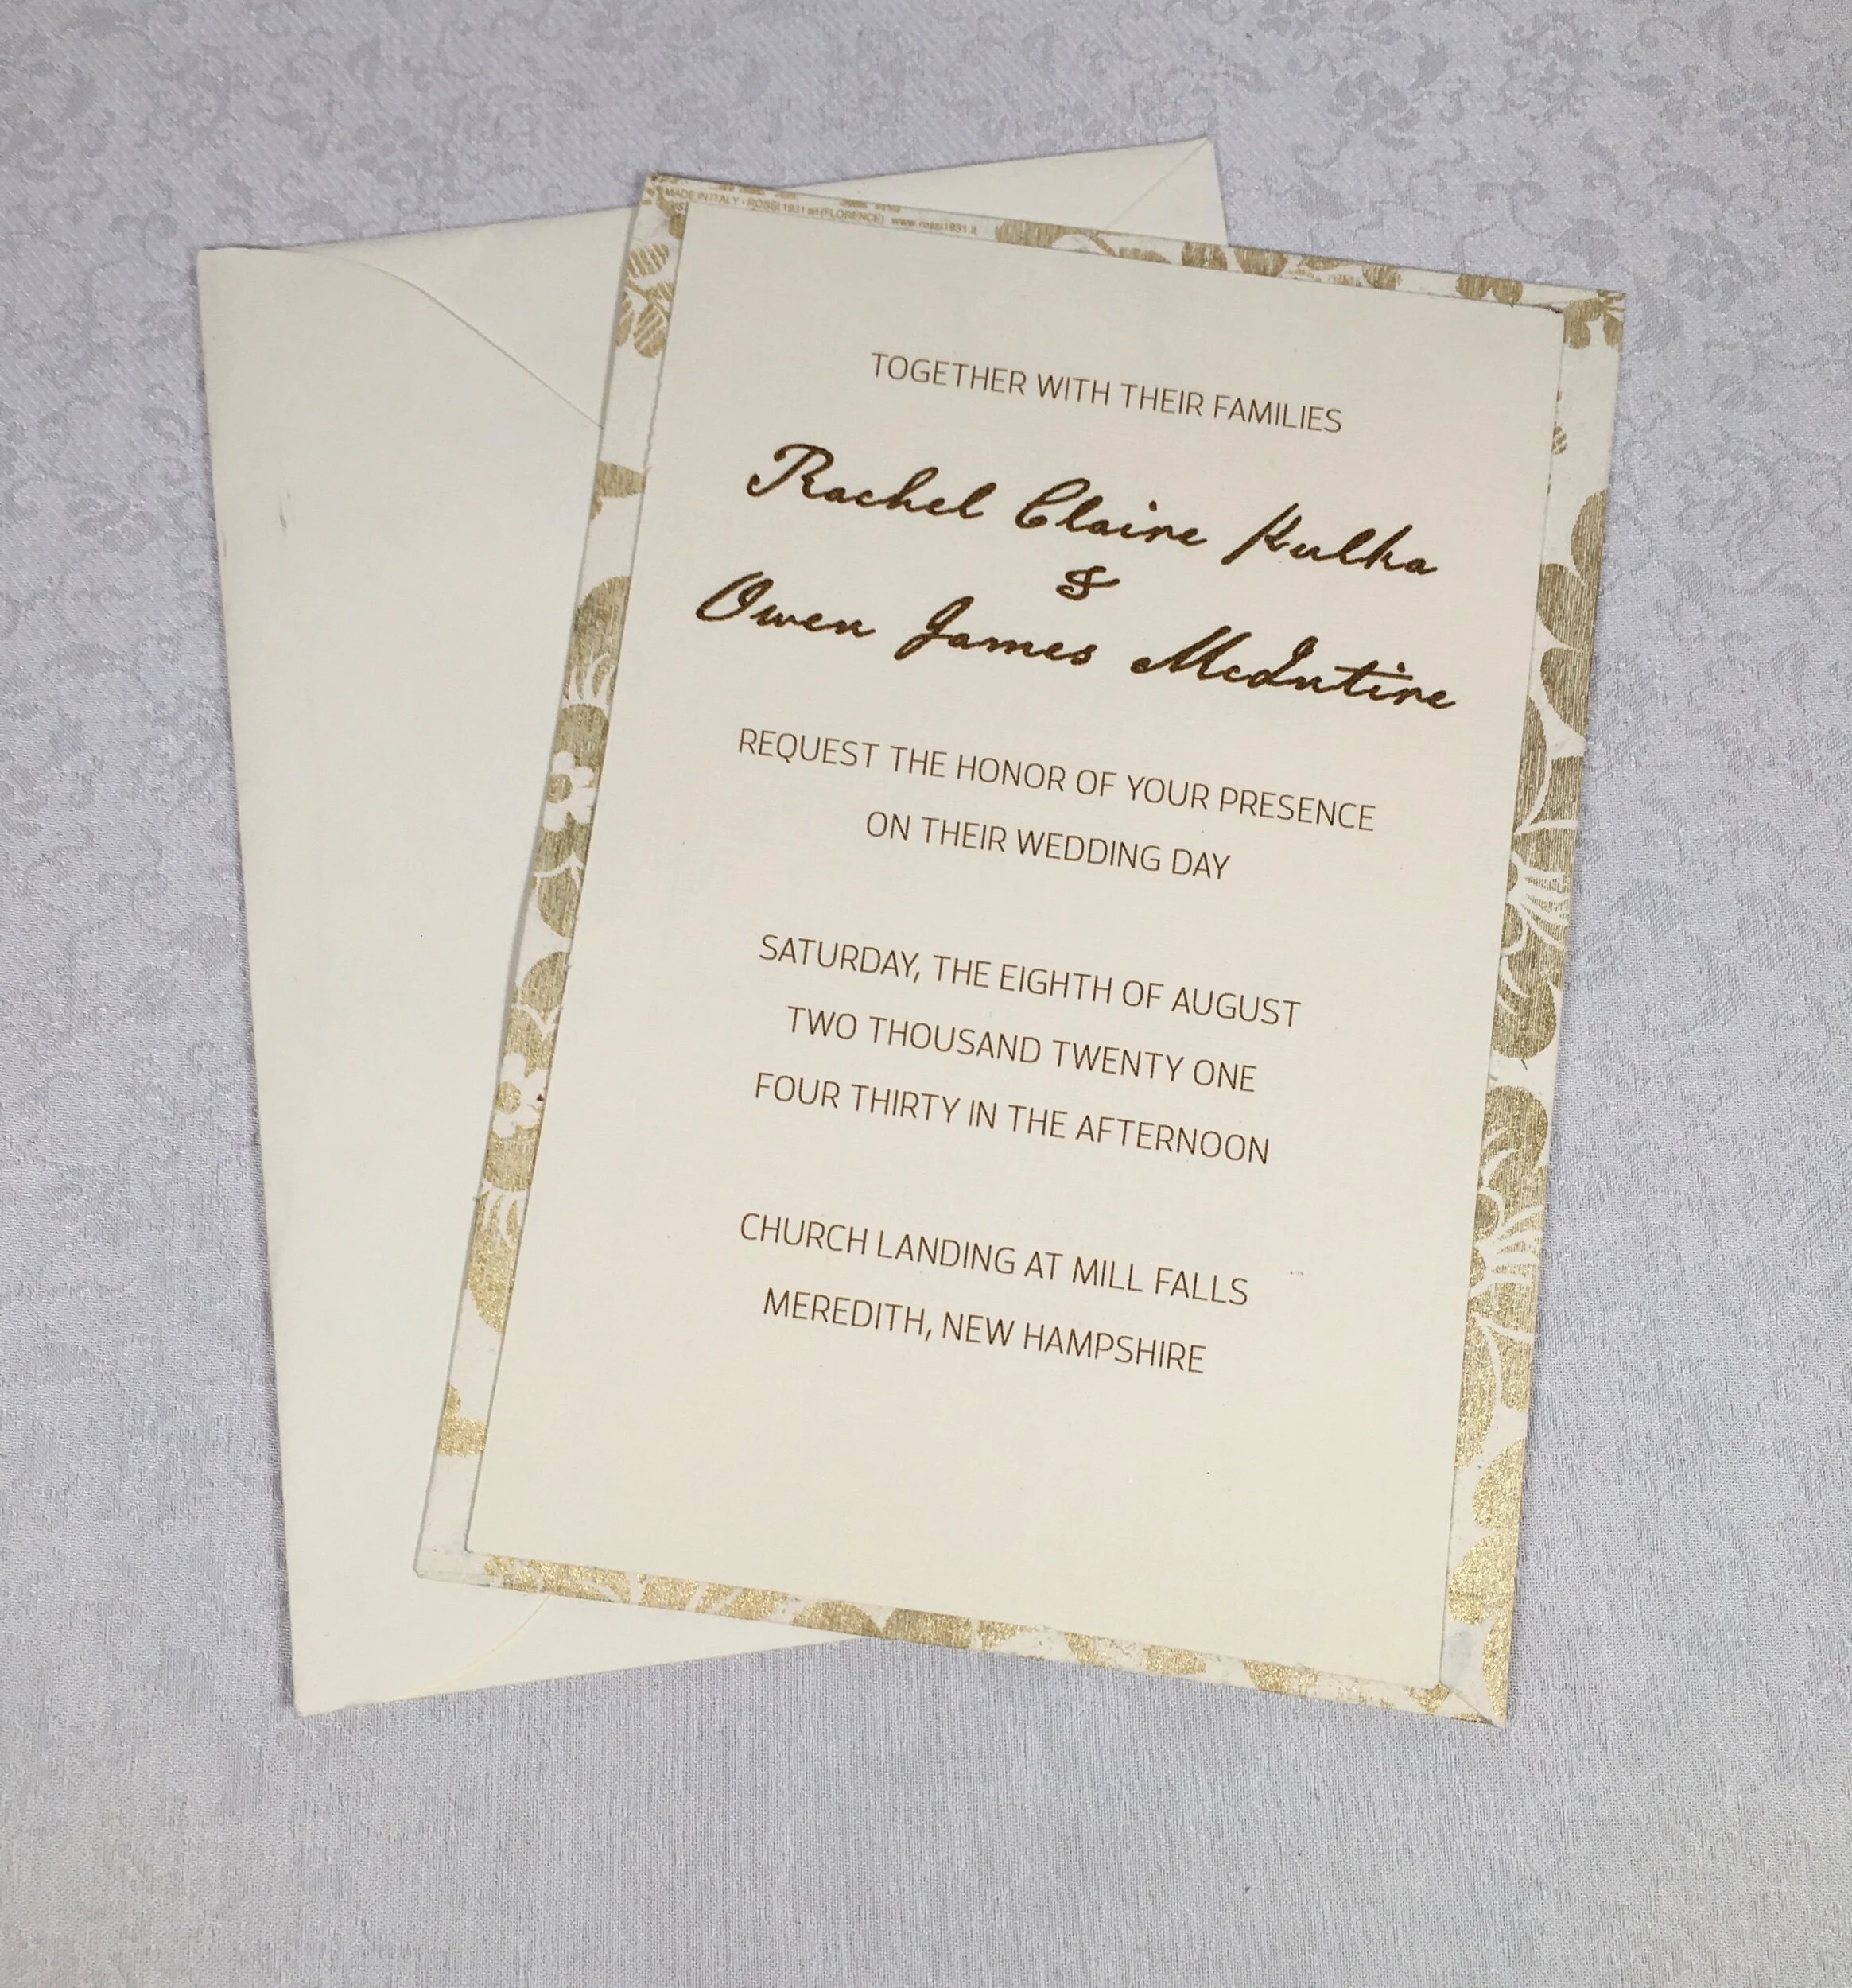 MADE IN ITALY - ROSSI 1931 srl (FLORENCE) www.rossi1931.it
TOGETHER WITH THEIR FAMILIES
Rachel Claire Kulka
&
Owen James McIntire
REQUEST THE HONOR OF YOUR PRESENCE
ON THEIR WEDDING DAY
SATURDAY, THE EIGHTH OF AUGUST
TWO THOUSAND TWENTY ONE
FOUR THIRTY IN THE AFTERNOON
CHURCH LANDING AT MILL FALLS
MEREDITH, NEW HAMPSHIRE